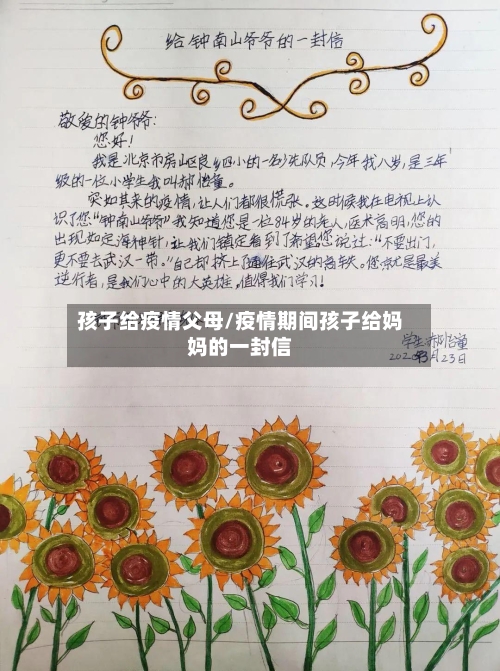 给钟南山爷爷的一封信
敬爱的钟爷爷:
您好!
我是北京市房山区良乡四小的一名少先队员,今年我八岁,是三年
级的一位小学生我叫郝僖童。
突如其来的疫情,让人们都很慌张。这时候我在电视上认
识了您“钟南山爷爷”我知道您是一位84岁的老人,医术高明,您的
出现如定海神针,让我们镇定看到了希望您说过:“不要出门,
更不要去武汉一带。”自己却挤上了通往武汉的高铁。您就是最美
逆行者,是我们心中的大英雄,值得我们学习!
孩子给疫情父母/疫情期间孩子给妈
妈的一封信
学生:郝
2020年3月23日